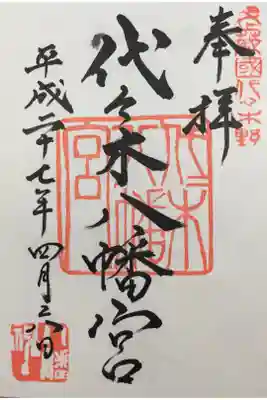 武蔵國代々木野
奉拝
代々木八幡宮
代々木八幡宮
平成二十七年四月日